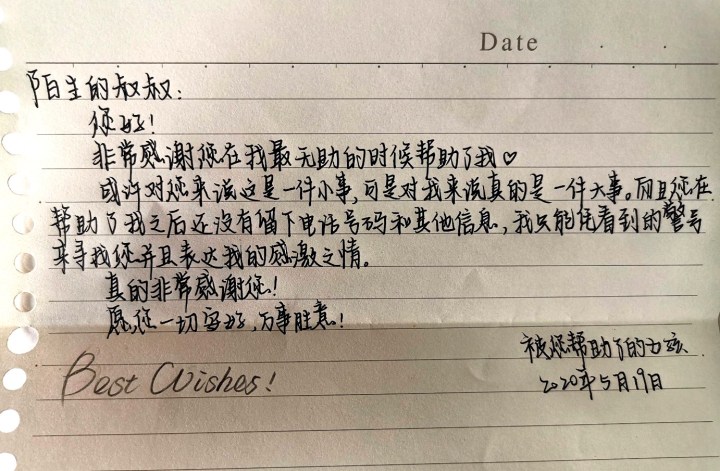 Date
陌生的叔叔:
您好!
非常感谢您在我最无助的时候帮助了我♡
或许对您来说这是一件小事,可是对我来说真的是一件大事。而且您在
帮助了我之后还没有留下电话号码和其他信息,我只能凭看到的警号
来寻找您并且表达我的感激之情。
真的非常感谢您!
愿您一切安好,万事胜意!
被您帮助了的女孩
Best Wishes!
2020年5月19日